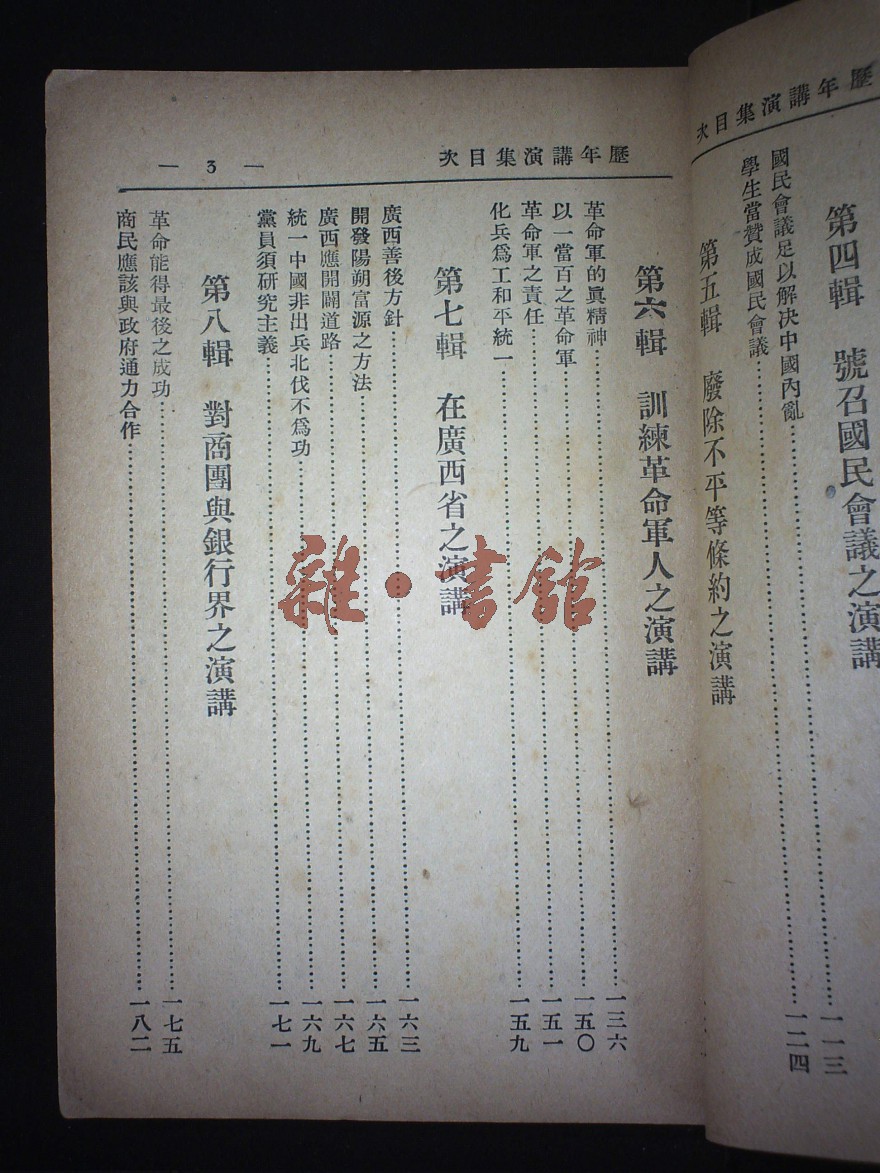 歷年講演集目次
第四輯 號召國民會議之演講
國民會議足以解決中國內亂……一一三
學生當贊成國民會議……一二四
第五輯 廢除不平等條約之演講
歷年講演集目次
— 3 —
第六輯 訓練革命軍人之演講
革命軍的眞精神……一三六
以一當百之革命軍……一五〇
革命軍之責任……一五一
化兵爲工和平統一……一五九
第七輯 在廣西省之演講
廣西善後方針……一六三
開發陽朔富源之方法……一六五
廣西應開闢道路……一六七
統一中國非出兵北伐不爲功……一六九
黨員須研究主義……一七一
第八輯 對商團與銀行界之演講
革命能得最後之成功……一七五
商民應該與政府通力合作……一八二
雜·書館